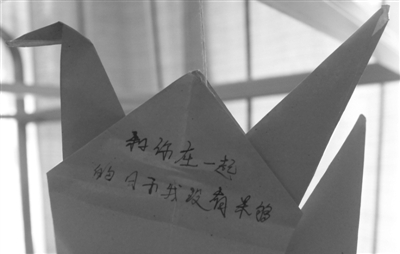 和你在一起
的日子我没有呆够